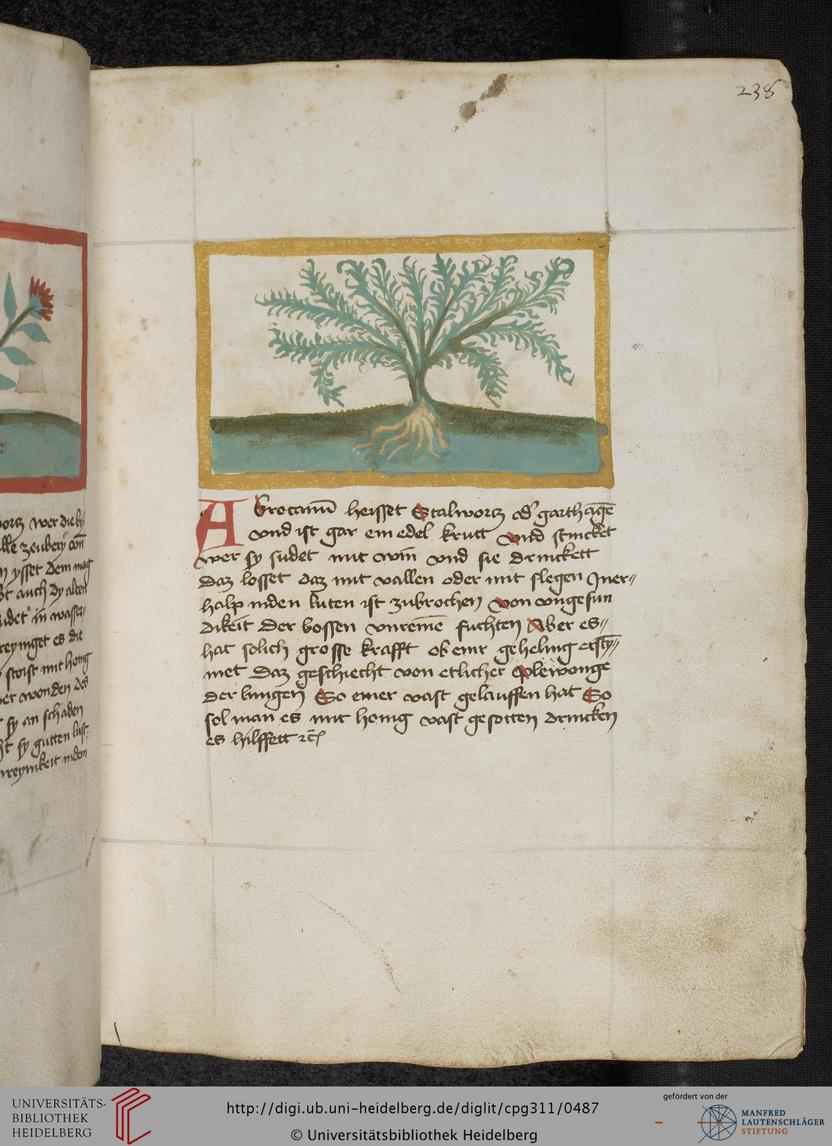 238
Abrotanū heisset Stalwortz od' garthagē
vnd ist gar ein edel krutt vnd stincket
wer sy sudet mit win vnd sie drinckett
daz losset daz mit vallen oder mit slegen Jner
halp inden luten ist zubrochen von vngesun
dikeit der bossen vnreinē fuchten Aber es
hat solich grosse krafft ob einr geheling
met daz geschiecht von etlicher
der lungen So einer vast gelauffen hat So
sol man es mit honig vast gesotten drincken
es hilffett ꝛc̄
wortz wer die by
alle zeubery
ysset dem mag
auch dy alten
sudet in wasser
reyniget es die
stost mit honig
wonden
sy an schaden
sy gutten lust
vnreynikeit inden
UNIVERSITÄTS-
BIBLIOTHEK
HEIDELBERG
http://digi.ub.uni-heidelberg.de/diglit/cpg311/0487
© Universitätsbibliothek Heidelberg
gefördert von der
MANFRED
LAUTENSCHLÄGER
STIFTUNG